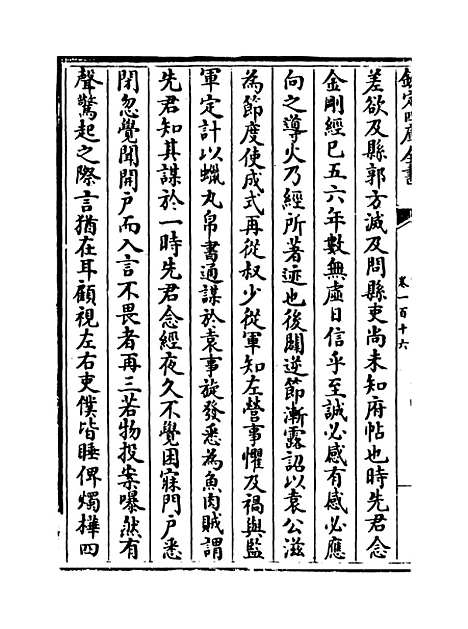 欽定四庫全書
卷一百十六
差欲及縣郭方滅及問縣吏尚未知府帖也時先君念
金剛經已五六年數無虛日信乎至誠必感有感必應
向之導火乃經所著迹也後闢逆節漸露詔以袁公滋
為節度使成式再從叔少從軍知左營事懼及禍與監
軍定計以蠟丸帛書通謀於袁事旋發悉為魚肉賊謂
先君知其謀於一時先君念經夜久不覺困寐門戶悉
閉忽覺聞開戶而入言不畏者再三若物投案曝然有
聲驚起之際言猶在耳顧視左右吏僕皆睡俾燭樺四